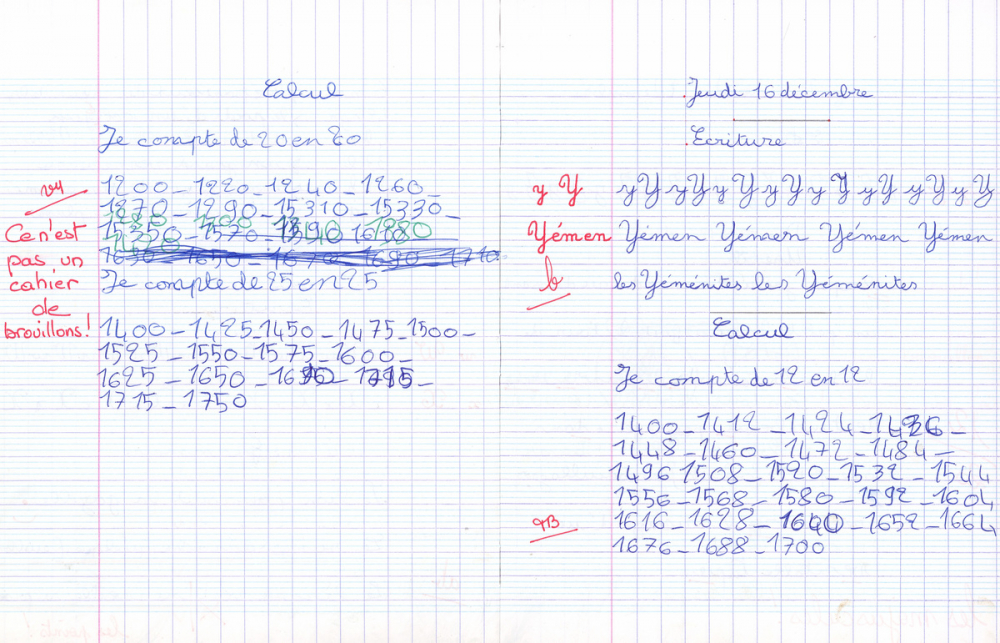 Calcul
Je compte de 20 en 20
vu
1200 - 1220 - 1240 - 1260 -
1270 - 1290 - 15310 - 15330 -
15350 - 1570 - 1390 1680
1630 - 1650 - 1670 - 1690 - 1710
Ce n'est
pas un
cahier
de
brouillons!
Je compte de 25 en 25
1400 - 1425 - 1450 - 1475 - 1500 -
1525 - 1550 - 1575 - 1600 -
1625 - 1650 -
1715 - 1750
Jeudi 16 décembre
Ecriture
y Y y Y y Y y Y y Y y Y y Y y Y y Y
Yémen Yémen Yémen Yémen Yémen
b les Yéménites les Yéménites
Calcul
Je compte de 12 en 12
1400 - 1412 - 1424 - 1436 -
1448 - 1460 - 1472 - 1484 -
1496 1508 - 1520 - 1532 - 1544
1556 - 1568 - 1580 - 1592 - 1604
TB 1616 - 1628 - 1640 - 1652 - 1664
1676 - 1688 - 1700